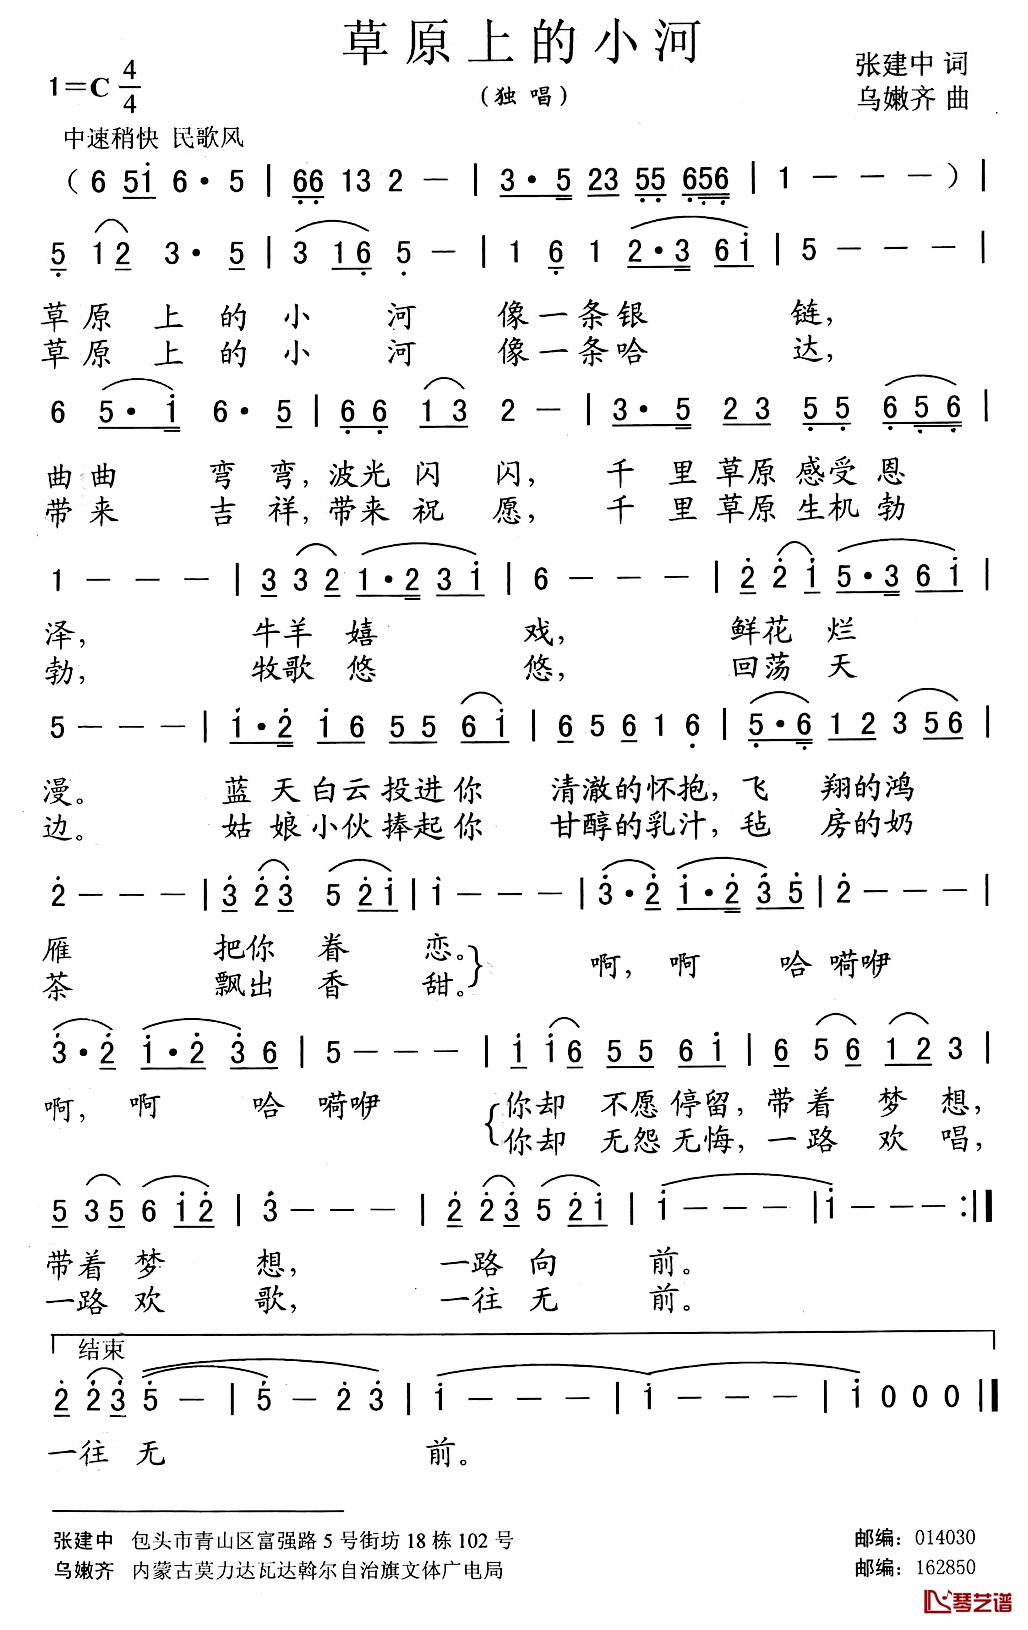 草原上的小河
(独唱)
1=C 4/4
张建中 词
乌嫩齐 曲
中速稍快 民歌风
( 6 5i 6· 5 | 66 13 2 — | 3· 5 23 55 656 | 1 — — — ) |
5 12 3· 5 | 3 16 5 — | 1 6 1 2·3 6i | 5 — — — |
草原 上 的 小 河 像一条银 链,
草原 上 的 小 河 像一条哈 达,
6 5· i 6· 5 | 66 13 2 — | 3· 5 23 55 656 |
曲曲 弯 弯, 波光 闪 闪, 千 里 草原 感受 恩
带来 吉 祥, 带来 祝 愿, 千 里 草原 生机 勃
1 — — — | 3 32 1·2 3i | 6 — — — | 2 2i 5·3 6i |
泽, 牛羊 嬉 戏, 鲜花 烂
勃, 牧歌 悠 悠, 回荡 天
5 — — — | i·2 i6 55 6i | 6 5 6 1 6 | 5·6 12 3 56 |
漫。 蓝 天白云投进你 清澈的怀抱, 飞 翔的鸿
边。 姑 娘小伙捧起你 甘醇的乳汁, 毡 房的奶
2 — — — | 3 23 5 2i | i — — — | 3·2 i·2 35 | 2 — — — |
雁 把你 眷 恋。 啊, 啊 哈 嗬咿
茶 飘出 香 甜。
3·2 i·2 36 | 5 — — — | i i6 55 6i | 6 56 12 3 |
啊, 啊 哈 嗬咿 你却 不愿 停留, 带着 梦 想,
你却 无怨 无悔, 一路 欢 唱,
5 35 6 i2 | 3 — — — | 2 23 5 2i | i — — — | i — — — :||
带着 梦 想, 一路 向 前。
一路 欢 歌, 一往 无 前。
结束
2 23 5 — | 5 — 2 3 | i — — — | i — — — | i 0 0 0 ||
一往 无 前。
张建中 包头市青山区富强路 5 号街坊 18 栋 102 号 邮编: 014030
乌嫩齐 内蒙古莫力达瓦达斡尔自治旗文体广电局 邮编: 162850
琴艺谱